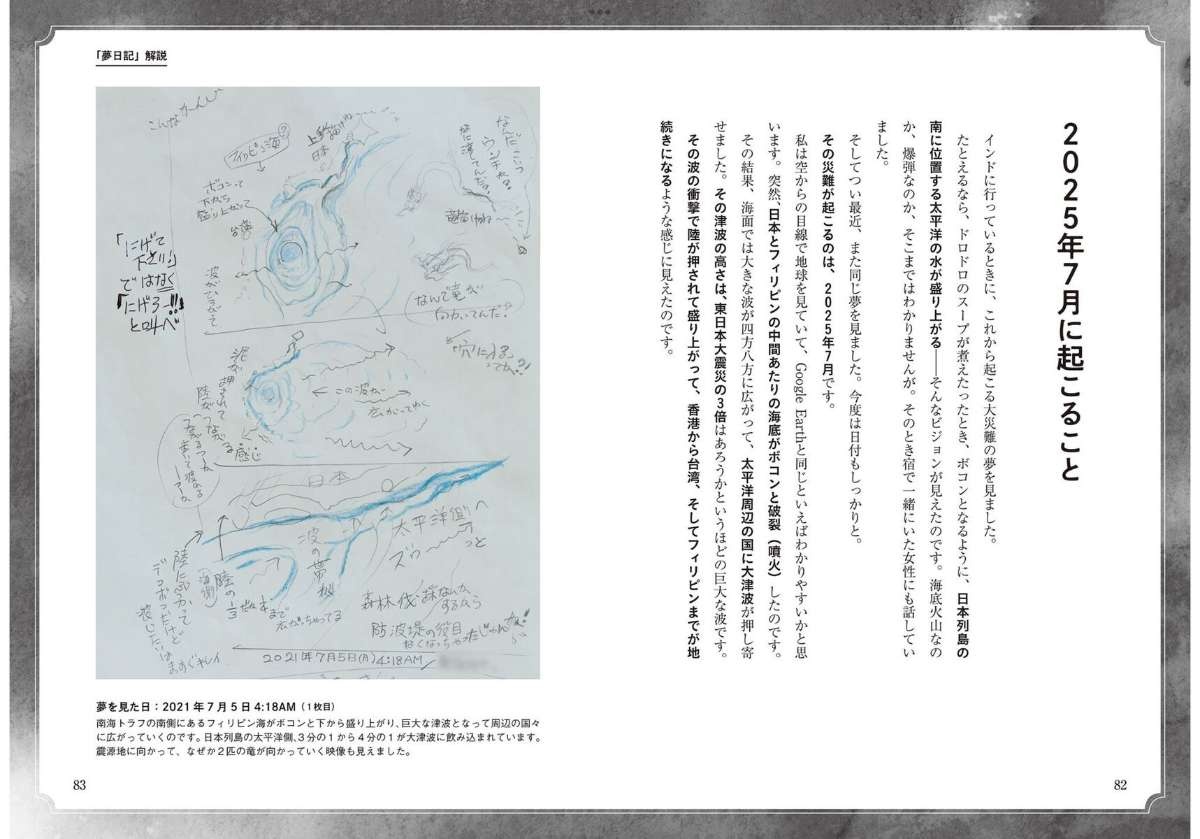 2025年7月に起こること
インドに行っているときに、これから起こる大災難の夢を見ました。
たとえるなら、ドロドロのスープが煮えたったとき、ボコンとなるように、日本列島の
南に位置する太平洋の水が盛り上がる――そんなビジョンが見えたのです。海底火山なの
か、爆弾なのか、そこまではわかりませんが。そのとき宿で一緒にいた女性にも話してい
ました。
そしてつい最近、また同じ夢を見ました。今度は日付もしっかりと。
その災難が起こるのは、2025年7月です。
私は空からの目線で地球を見ていて、Google Earthと同じといえばわかりやすいかと思
います。突然、日本とフィリピンの中間あたりの海底がボコンと破裂（噴火）したのです。
その結果、海面では大きな波が四方八方に広がって、太平洋周辺の国に大津波が押し寄
せました。その津波の高さは、東日本大震災の3倍はあろうかというほどの巨大な波です。
その波の衝撃で陸が押されて盛り上がって、香港から台湾、そしてフィリピンまでが地
続きになるような感じに見えたのです。
82
「夢日記」解説
こんなかーんじ
フィリピン海?
日本
ボコンって
下から
盛り上がって
台湾
波がひろがって
なんで竜が
向かってんだ?
「にげて
下さい」
ではなく
「にげろー!!」
と叫べ
この波が
広がってゆく
陸が
つながる
感じ
日本
太平洋側へ
ズゥーーっと
波の帯
陸に向かって
デコボコだけど
広がっちゃってる
森林伐採なんか
するから
防波堤の役目
なくなっちゃった
2021年7月5日(月)4:18AM
夢を見た日：2021年7月5日4:18AM（1枚目）
南海トラフの南側にあるフィリピン海がボコンと下から盛り上がり、巨大な津波となって周辺の国々
に広がっていくのです。日本列島の太平洋側、3分の1から4分の1が大津波に飲み込まれています。
震源地に向かって、なぜか2匹の竜が向かっていく映像も見えました。
83